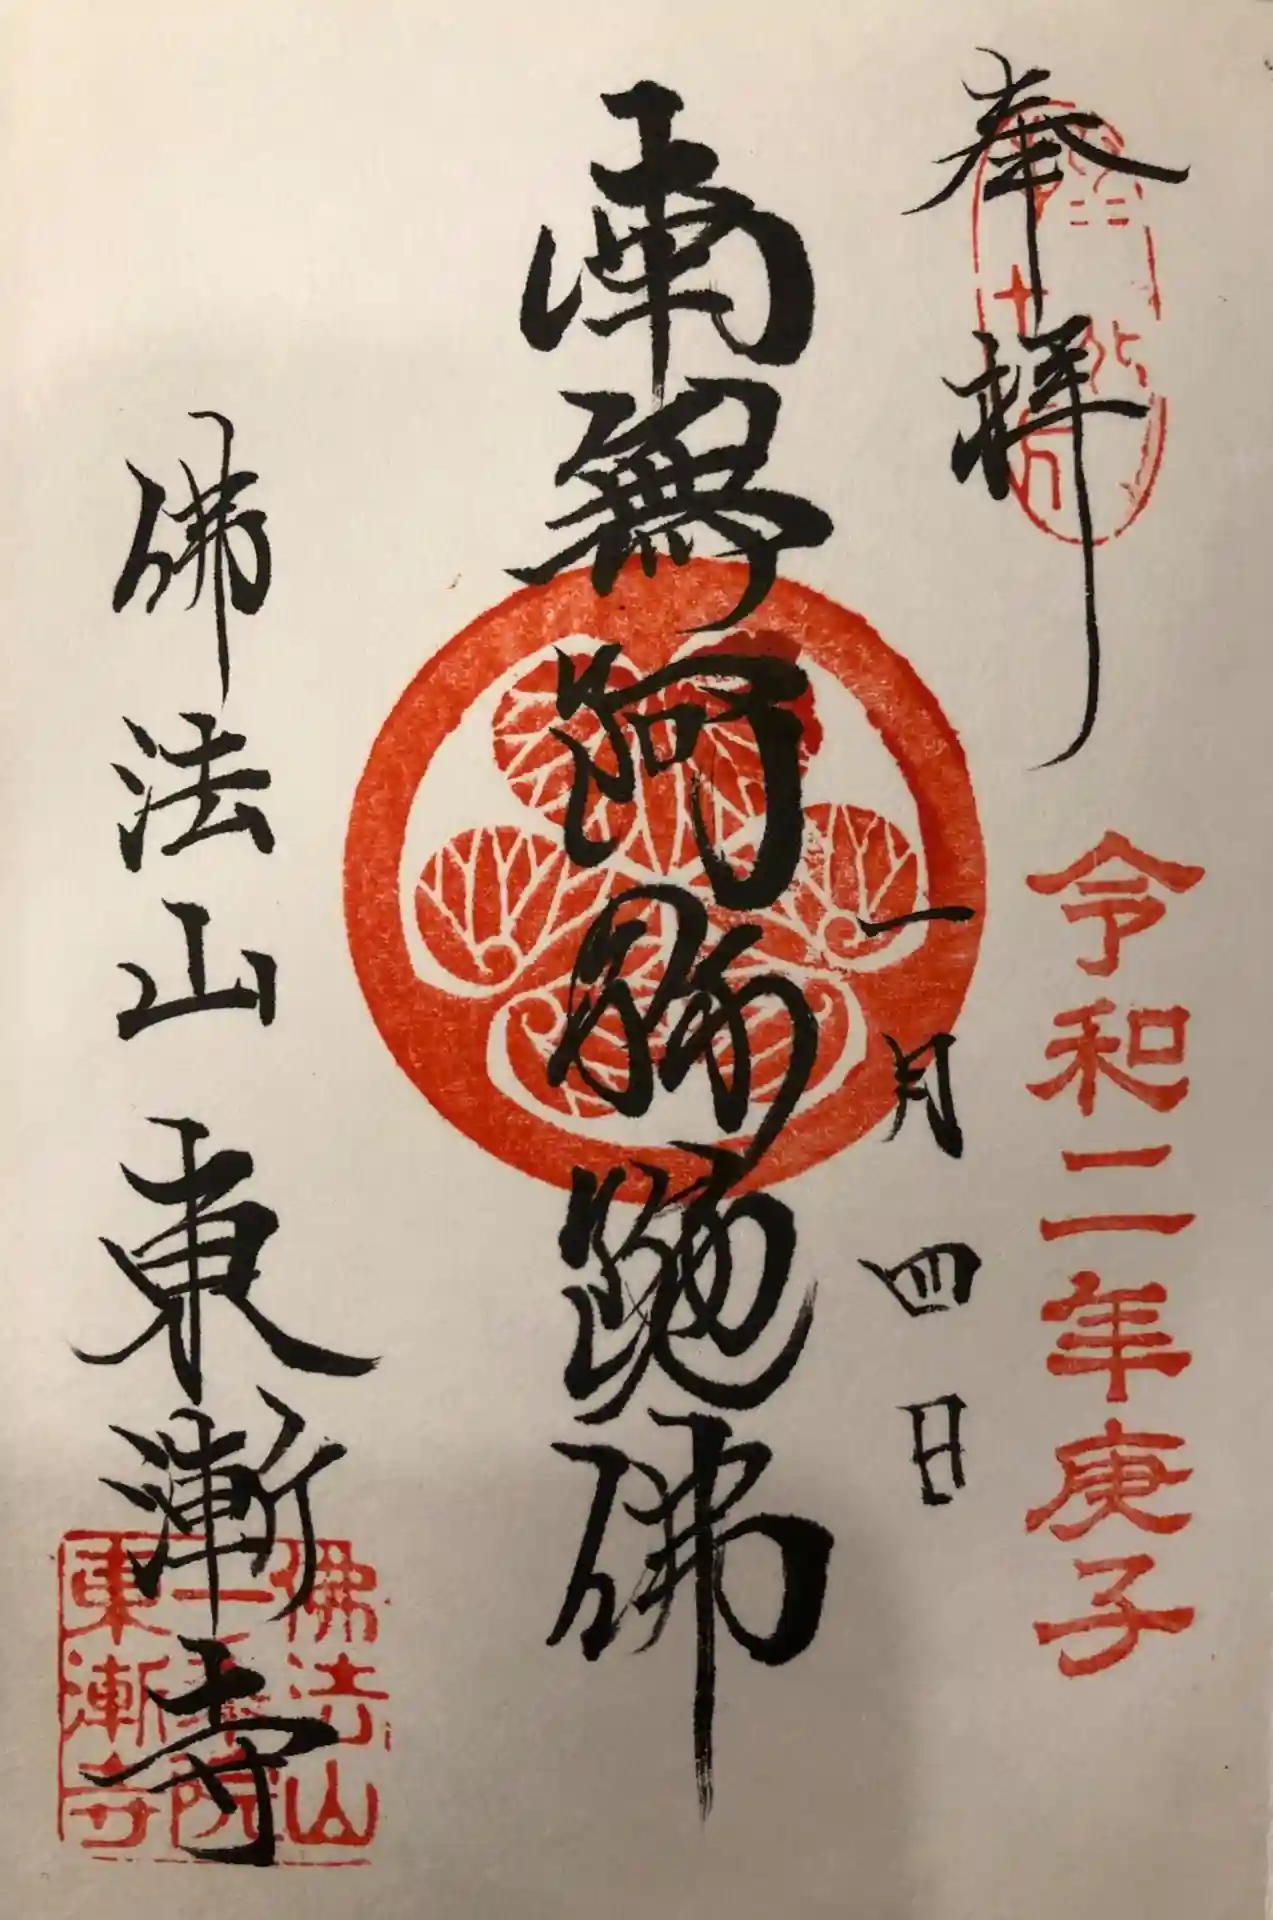 奉拝
令和二年庚子
一月四日
南無阿弥陀佛
佛法山東漸寺
佛法山
一乗院
東漸寺